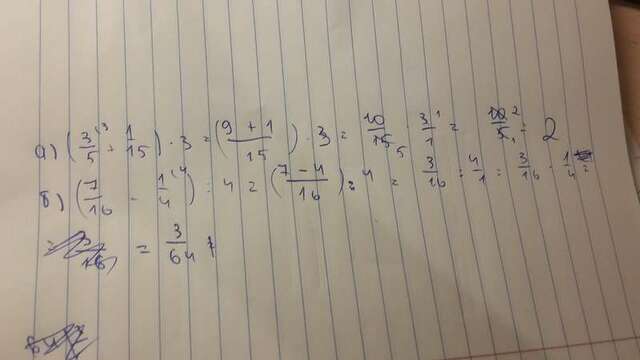 а) (3/5 + 1/15) · 3 = (9 + 1)/15 · 3 = 10/15 · 3/1 = 10/5 = 2
б) (7/16 - 1/4) : 4 = (7 - 4)/16 : 4 = 3/16 : 4/1 = 3/16 · 1/4 =
= 3/64